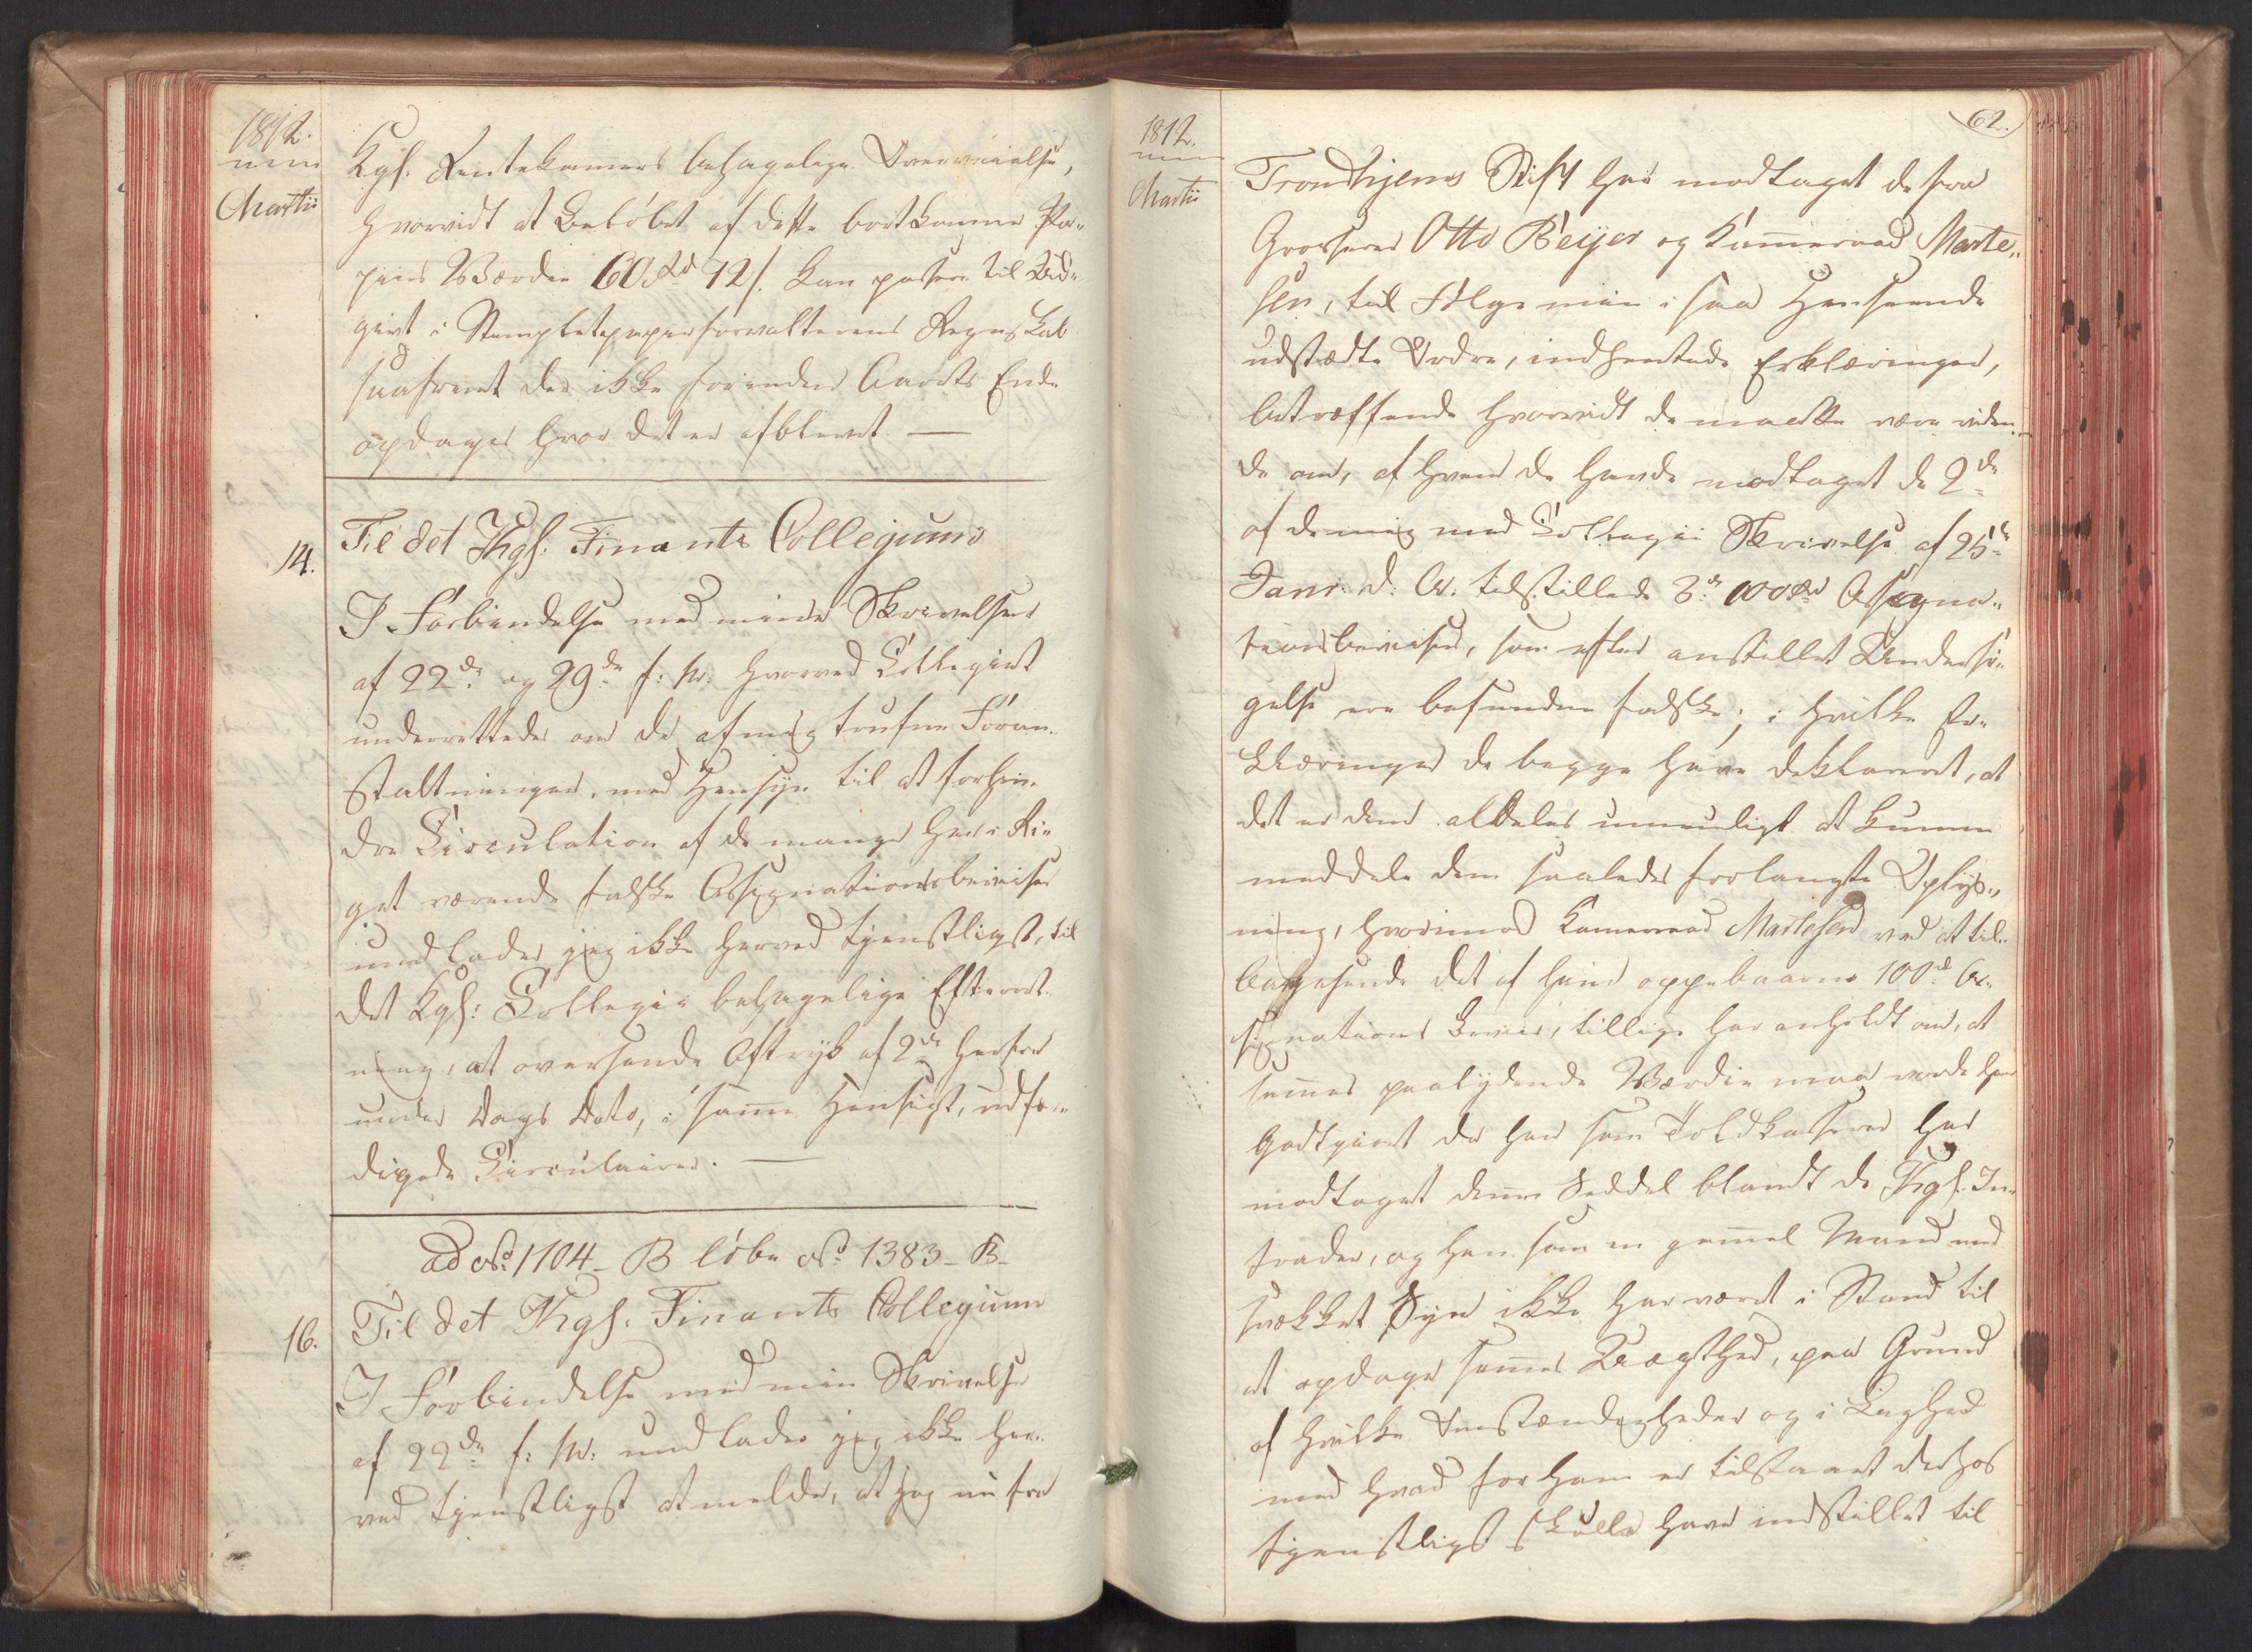 1812.
Martii
Kgl. Rentekamers behagelige Overveielse,
hvorvidt at Beløbet af dette bortkomne Pa-
piirs Værdie 60 Rd 72 s. kan passere til Ud-
givt i Stempletpapiirforvalterens Regnskab
saafremt det ikke forinden Aarets Ende
opdages hvor det er afblevet. —
14.
Til det Kgl: Finants Collegium
I Forbindelse med mine Skrivelser
af 22de og 29de f: M: hvorved Collegiet
underrettedes om de af mig trufne Foran-
staltninger, med Hensyn til at forhin-
dre Circulation af de mange her i Ri-
get værende falske Assignationsbeviser
undlader jeg ikke herved tjenstligst, til
det Kgl: Collegii behagelige Efterret-
ning, at oversende Aftryk af 2de herfra
under Dags Dato, i samme Hensigt, udfær-
digede Circulairer. —
ad No 1104 - B løbe No 1383 - B -
16.
Til det Kgl. Finants Collegium
I Forbindelse med min Skrivelse
af 22de f: M: undlader jeg ikke her-
ved tjenstligst at melde, at jeg nu fra
1812.
Martii
62.
Trondhjems Stift har modtaget de fra
Grosserer Otto Beijer og Kammerraad Marte-
sen, til Følge min i saa Henseende
udstædte Ordre, indhentede Erklæringer,
betræffende hvorvidt de maatte være viden-
de om, af hvem de havde modtaget de 2de
af de mig med Collegii Skrivelse af 25de
Janr. d: A. tilstillede 3de 100 Rd Assigna-
tionsbeviser, som efter anstillet Undersø-
gelse ere befundne falske; i hvilke Er-
klæringer de begge have deklareret, at
det er dem aldeles umueligt at kunne
meddele den saaledes forlangte Oplys-
ning, hvorimod Kamerraad Martesen ved at til-
bagesende det af ham oppebaarne 100 Rd As-
signations Beviis, tillige har anholdt om, at
sammes paalydende Værdie maa vorde ham
godtgiort da han som Toldkasserer har
modtaget denne Seddel blandt de Kgl. In-
trader, og han som en gammel Mand med
svækket Syn ikke har været i Stand til
at opdage sammes Uægthed, paa Grund
af hvilke Omstændigheder og i Liighed
med hvad for ham er tilstaaet derhos
tjenstligst skulle have indstillet til